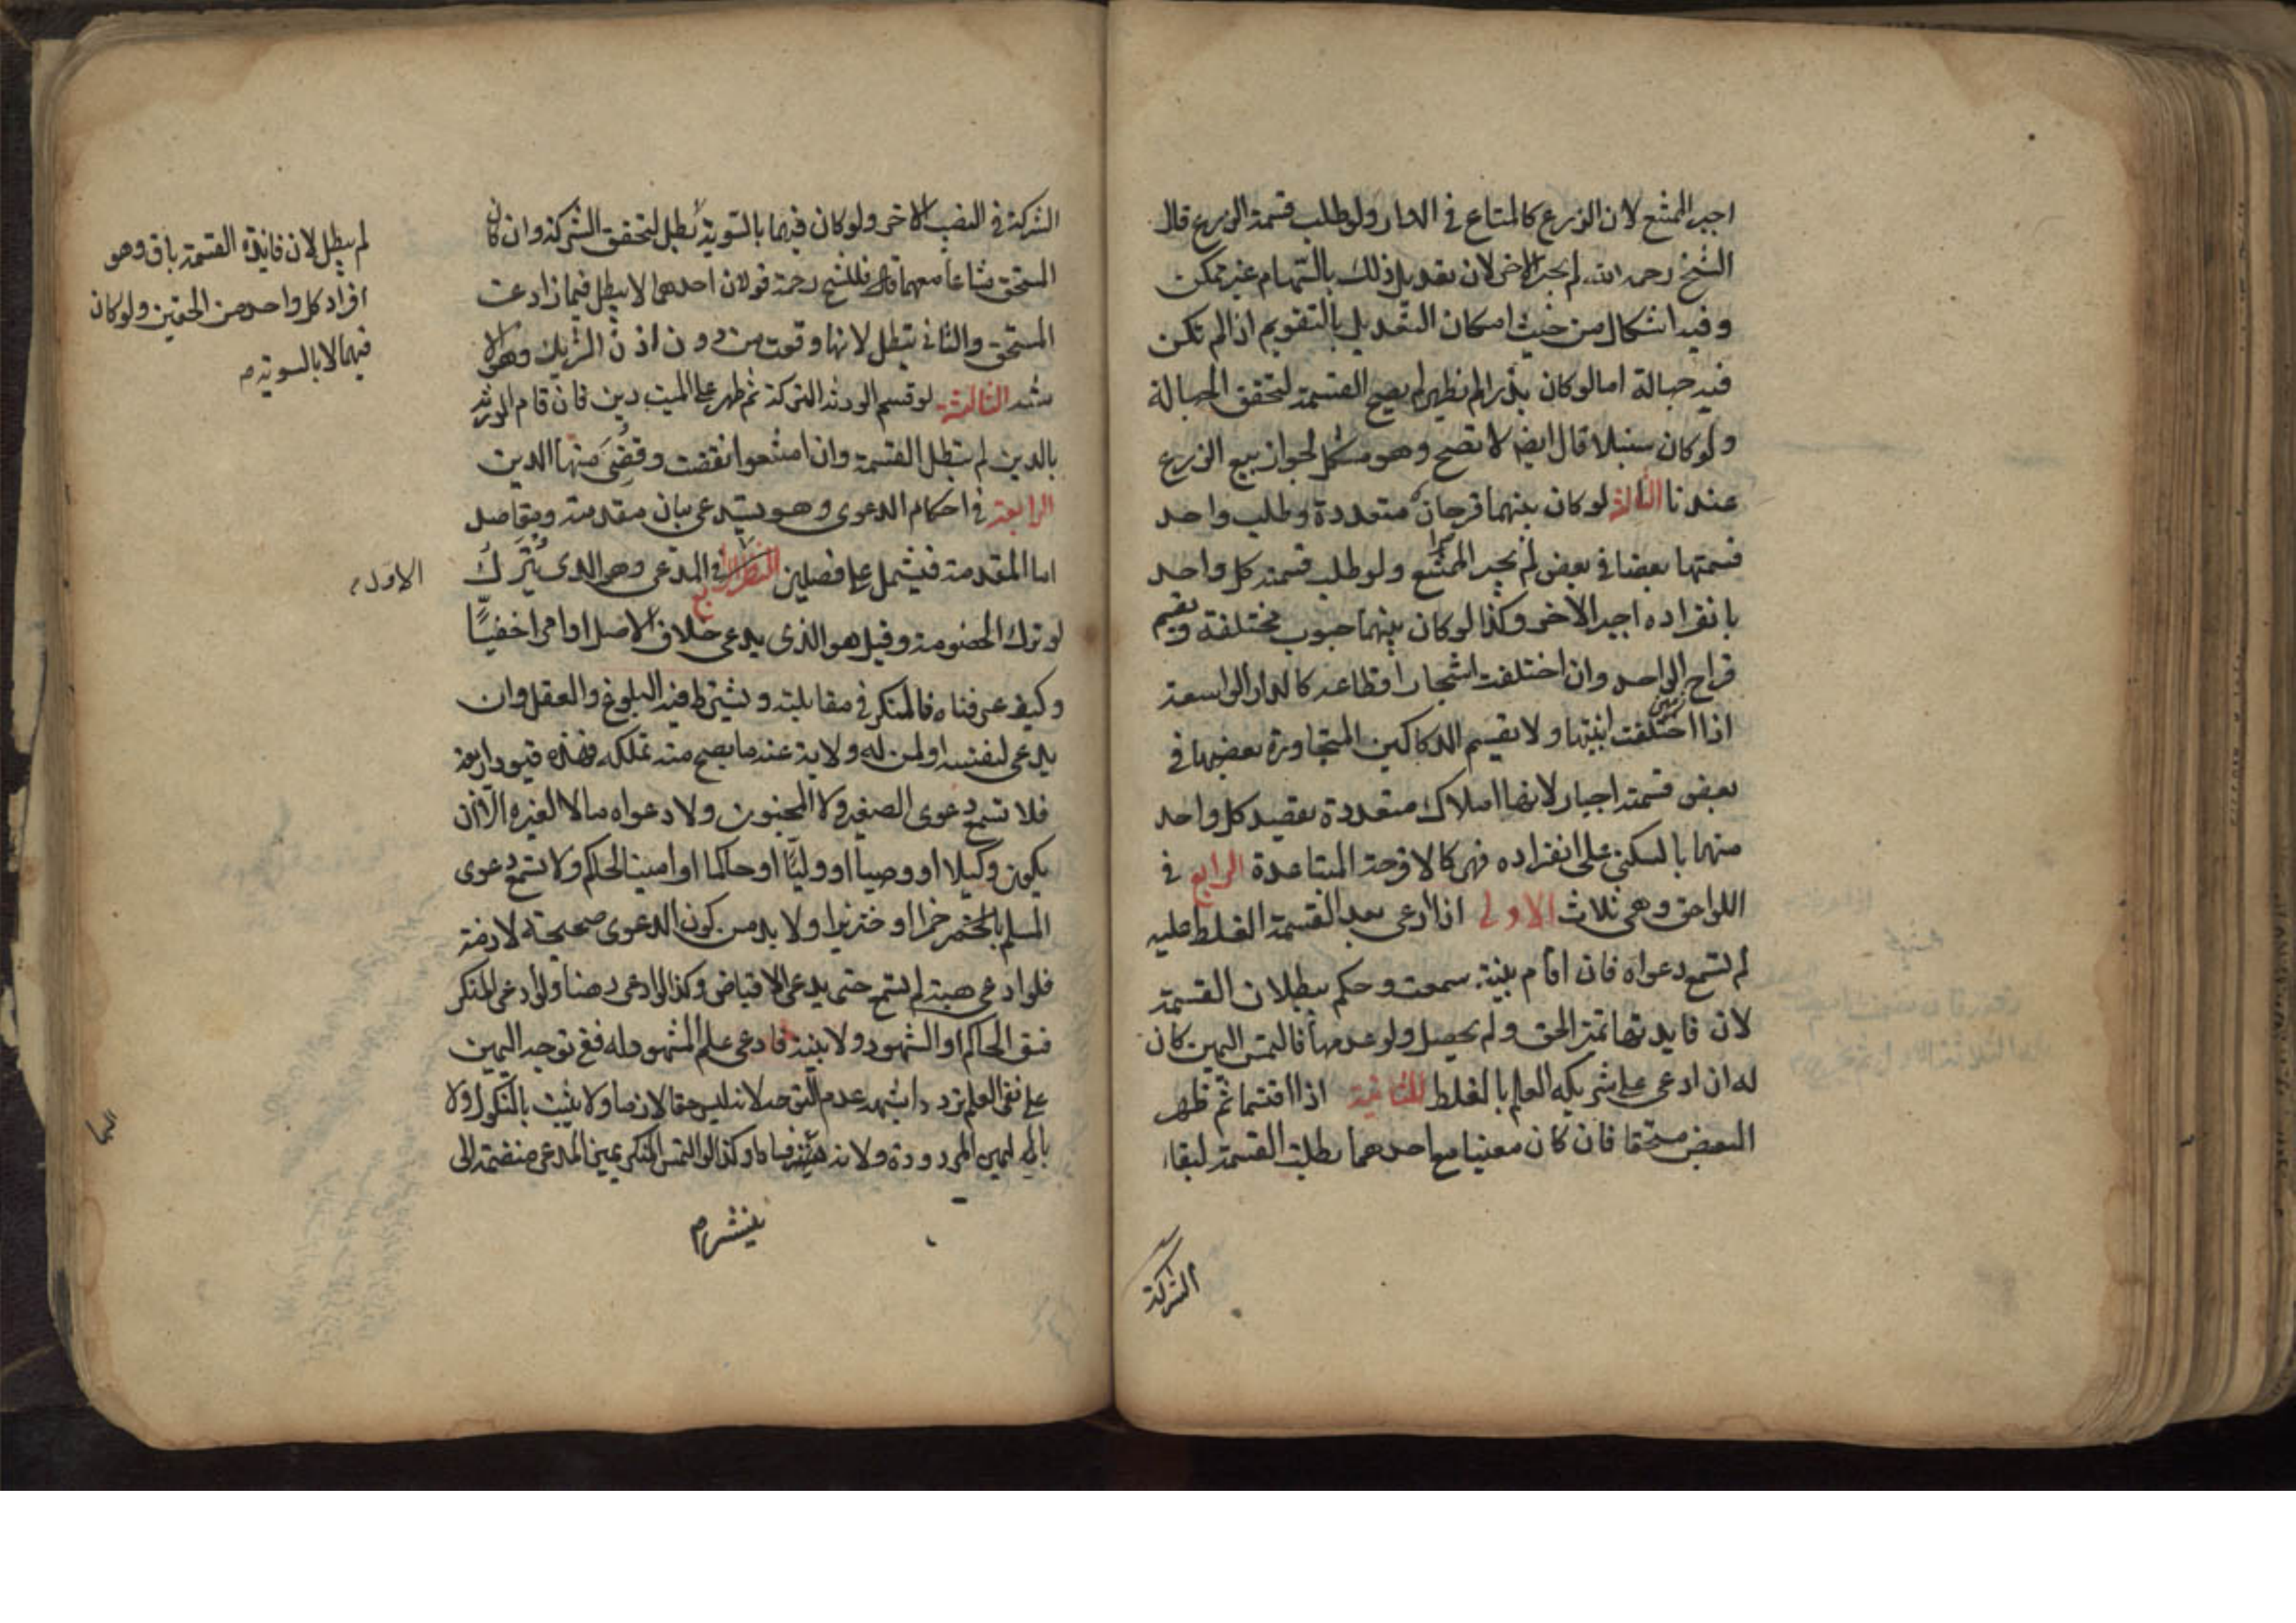 اجبر الممتنع لان الزرع كالمتاع في الدار ولو طلب قسمة الزرع قال
الشيخ رحمه الله لم يجبر الاخر لان تعديل ذلك بالسهام غير ممكن
وفيه اشكال من حيث امكان التعديل بالتقويم اذا لم تكن
فيه جهالة اما لو كان بذرا لم يظهر لم يصح القسمة لتحقق الجهالة
ولو كان سنبلا قال ايضا لا تصح وهو مشكل لجواز بيع الزرع
عندنا الثالثة لو كان بينهما قرحان متعددة وطلب واحد
قسمتها بعضا في بعض لم يجبر الممتنع ولو طلب قسمة كل واحد
بانفراده اجبر الاخر وكذا لو كان بينهما حبوب مختلفة ويقسم
قراح الواحد وان اختلفت اشجار اقطاعه كالدار الواسعة
اذا اختلفت ابنيتها ولا يقسم الدكاكين المتجاورة بعضها في
بعض قسمة اجبار لانها املاك متعددة يقصد كل واحد
منها بالسكنى على انفراده فهي كالاقرحة المتباعدة الرابع في
اللواحق وهي ثلاث الاولى اذا ادعى بعد القسمة الغلط عليه
لم تسمع دعواه فان اقام بينة سمعت وحكم ببطلان القسمة
لان فايدتها تميز الحق ولم يحصل ولو عدمها فالتمس اليمين كان
له ان ادعى على شريكه العلم بالغلط الثانية اذا اقتسما ثم ظهر
البعض مستحقا فان كان معينا مع احدهما بطلت القسمة لبقاء
الشركة
الشركة في النصيب الاخر ولو كان فيهما بالسوية لم تبطل لتحقق الشركة وان كان
المستحق مشاعا معهما فللشيخ رحمة قولان احدهما لا يبطل فيما زاد عن
المستحق والثاني تبطل لانها وقعت من دون اذن الشريك وهو الا
شبه الثالثة لو قسم الورثة التركة ثم ظهر على الميت دين فان قام الورثة
بالدين لم تبطل القسمة وان امتنعوا نقضت وقضى منها الدين
الرابعة في احكام الدعوى وهو يستدعي بيان مقدمة ومقاصد
اما المقدمة فتشتمل على فصلين في المدعي وهو الذي يترك
لو ترك الخصومة وقيل هو الذي يدعي خلاف الاصل او امرا خفيا
وكيف عرفناه فالمنكر في مقابلته ويشترط فيه البلوغ والعقل وان
يدعي لنفسه او لمن له ولاية عنه ما يصح منه تملكه فهذه قيود اربعة
فلا تسمع دعوى الصغير ولا المجنون ولا دعواه مالا لغيره الا ان
يكون وكيلا او وصيا او وليا او حاكما او امينا لحاكم ولا تسمع دعوى
المسلم خمرا او خنزيرا ولا بد من كون الدعوى صحيحة لازمة
فلو ادعى هبة لم تسمع حتى يدعي الاقباض وكذا لو ادعى رهنا ولو ادعى المنكر
فسق الحاكم او الشهود ولا بينة فادعى علم المشهود له ففي توجه اليمين
على نفي العلم تردد اشبهه عدم التوجه لانه ليس حقا لازما ولا يثبت بالنكول ولا
باليمين المردودة ولانه يثير فسادا وكذا لو التمس المنكر يمين المدعي منضمة الى
لم يبطل لان فايدة القسمة باق وهو
افراد كل واحد من الحقين ولو كان
فيهما لا بالسوية م
الاول م